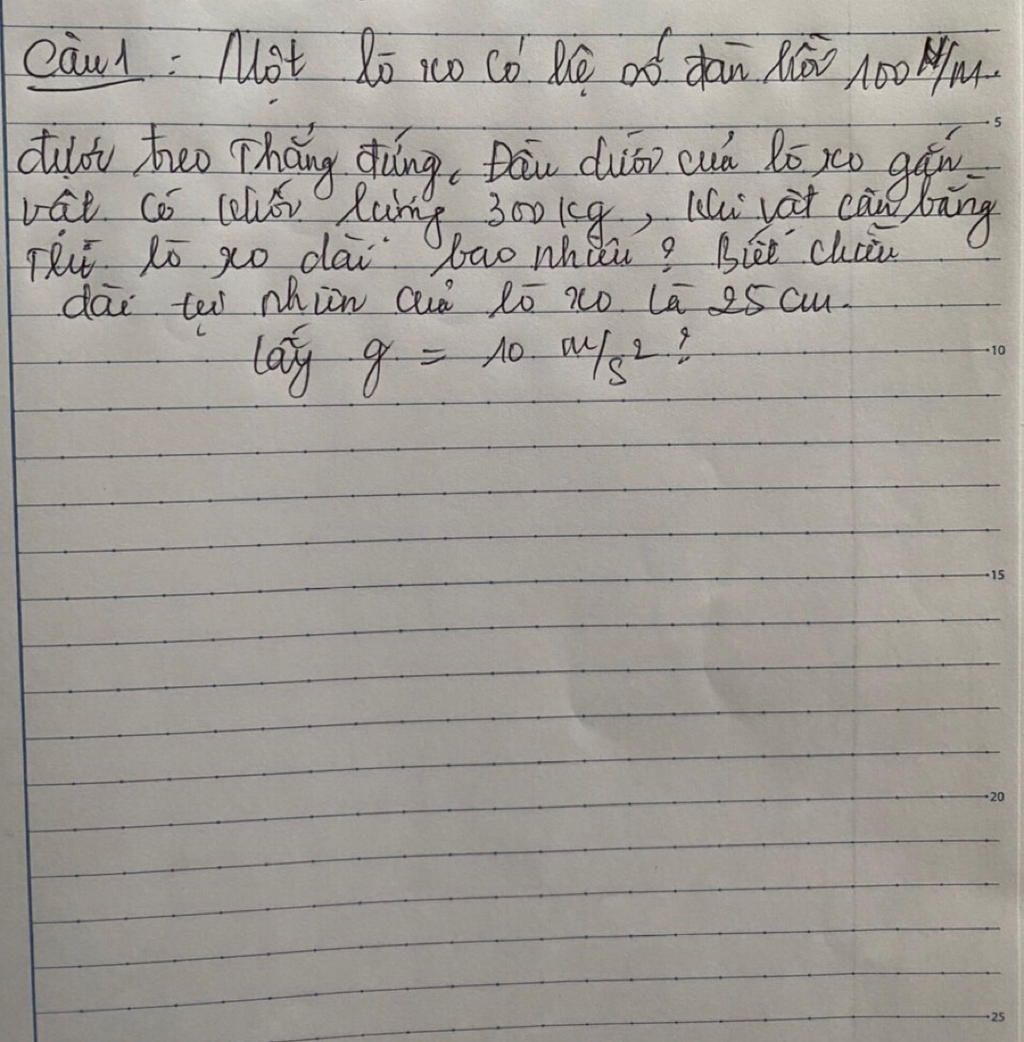 Câu 1 : Một lò xo có hệ số đàn hồi 100 N/m.
5
được treo Thẳng đứng, Đầu dưới của lò xo gắn
vật có khối lượng 300 kg, khi vật cân bằng
Thì lò xo dài bao nhiêu ? Biết chiều
dài tự nhiên của lò xo là 25 cm.
lấy g = 10 m/s² ?
10
15
20
25